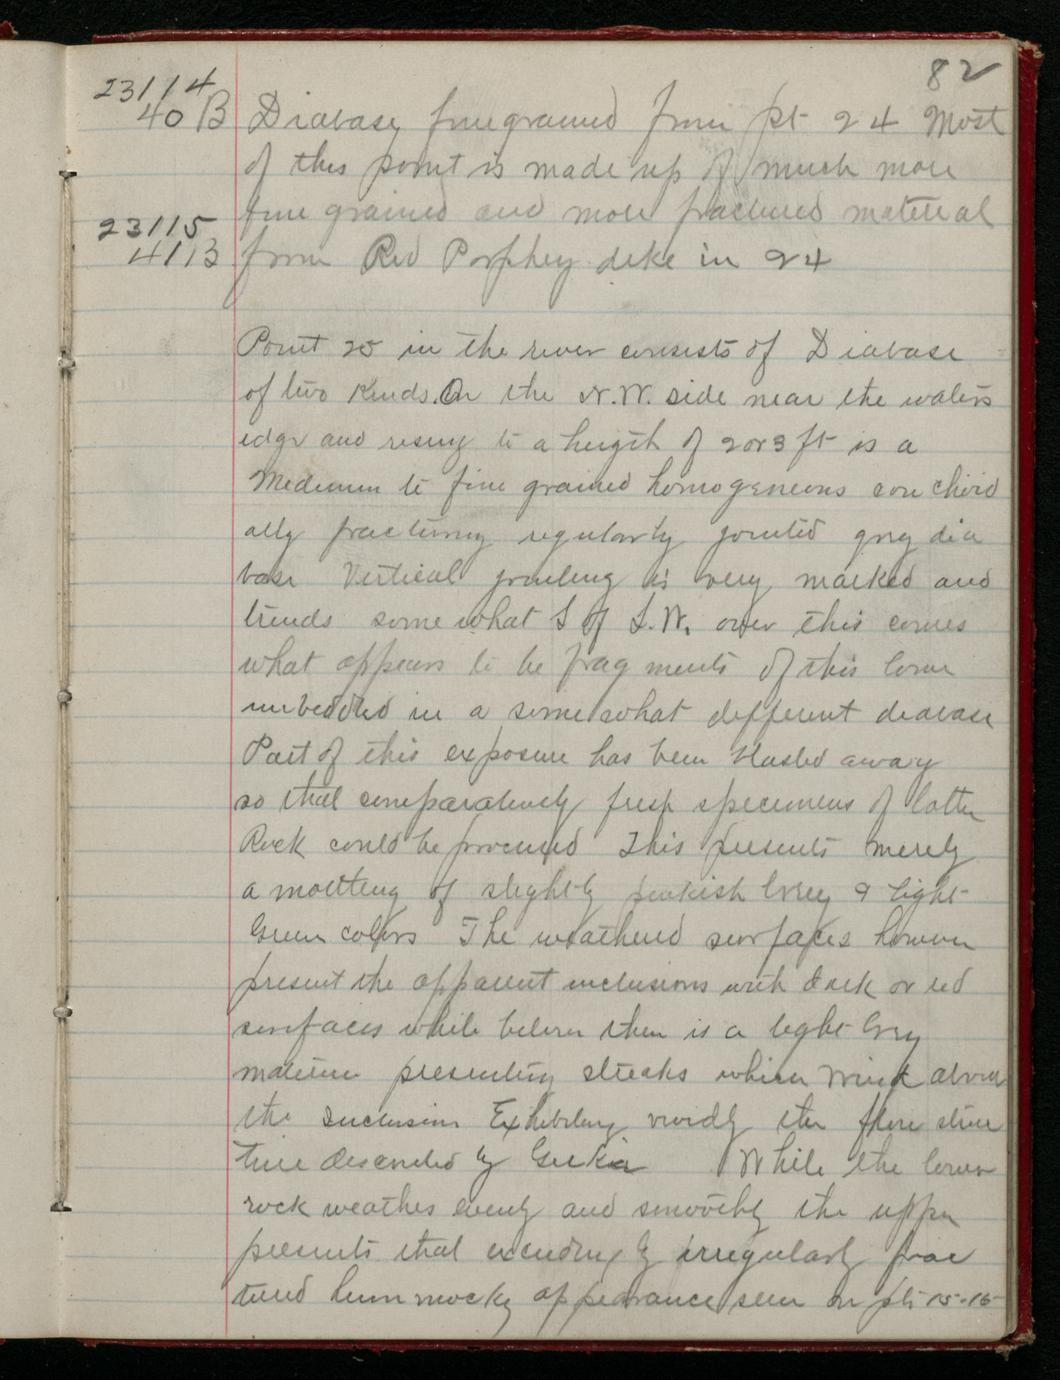 82
23114
40 B Diabase finegrained from pt 24 Most
of this point is made up of much more
fine grained and more fractured material
23115
41 B from Red Porphey dike in 24
Point 25 in the river consists of Diabase
of two Kinds. On the N.W. side near the waters
edge and rising to a heigth of 2 or 3 ft is a
Medium to fine grained homogeneous conchoid
ally fracturing regularly jointed grey dia
base Vertical jointing is very marked and
trends somewhat S of S.W. over this comes
what appears to be fragments of this lower
imbedded in a somewhat different diabase
Part of this exposure has been blasted away
so that comparatively fresh specimens of latter
Rock could be procured This presents merely
a mottling of slightly pinkish Grey & light
Green colors The weathered surfaces however
present the apparent inclusions with dark or red
surfaces while below them is a light Grey
material presenting streaks which wind about
the inclusions Exhibiting vividly the flow struc
ture described by Geikie While the lower
rock weathes evenly and smoothly the upper
presents that exceedingly irregularly frac
tured hummocky appearance seen on pts 15-16